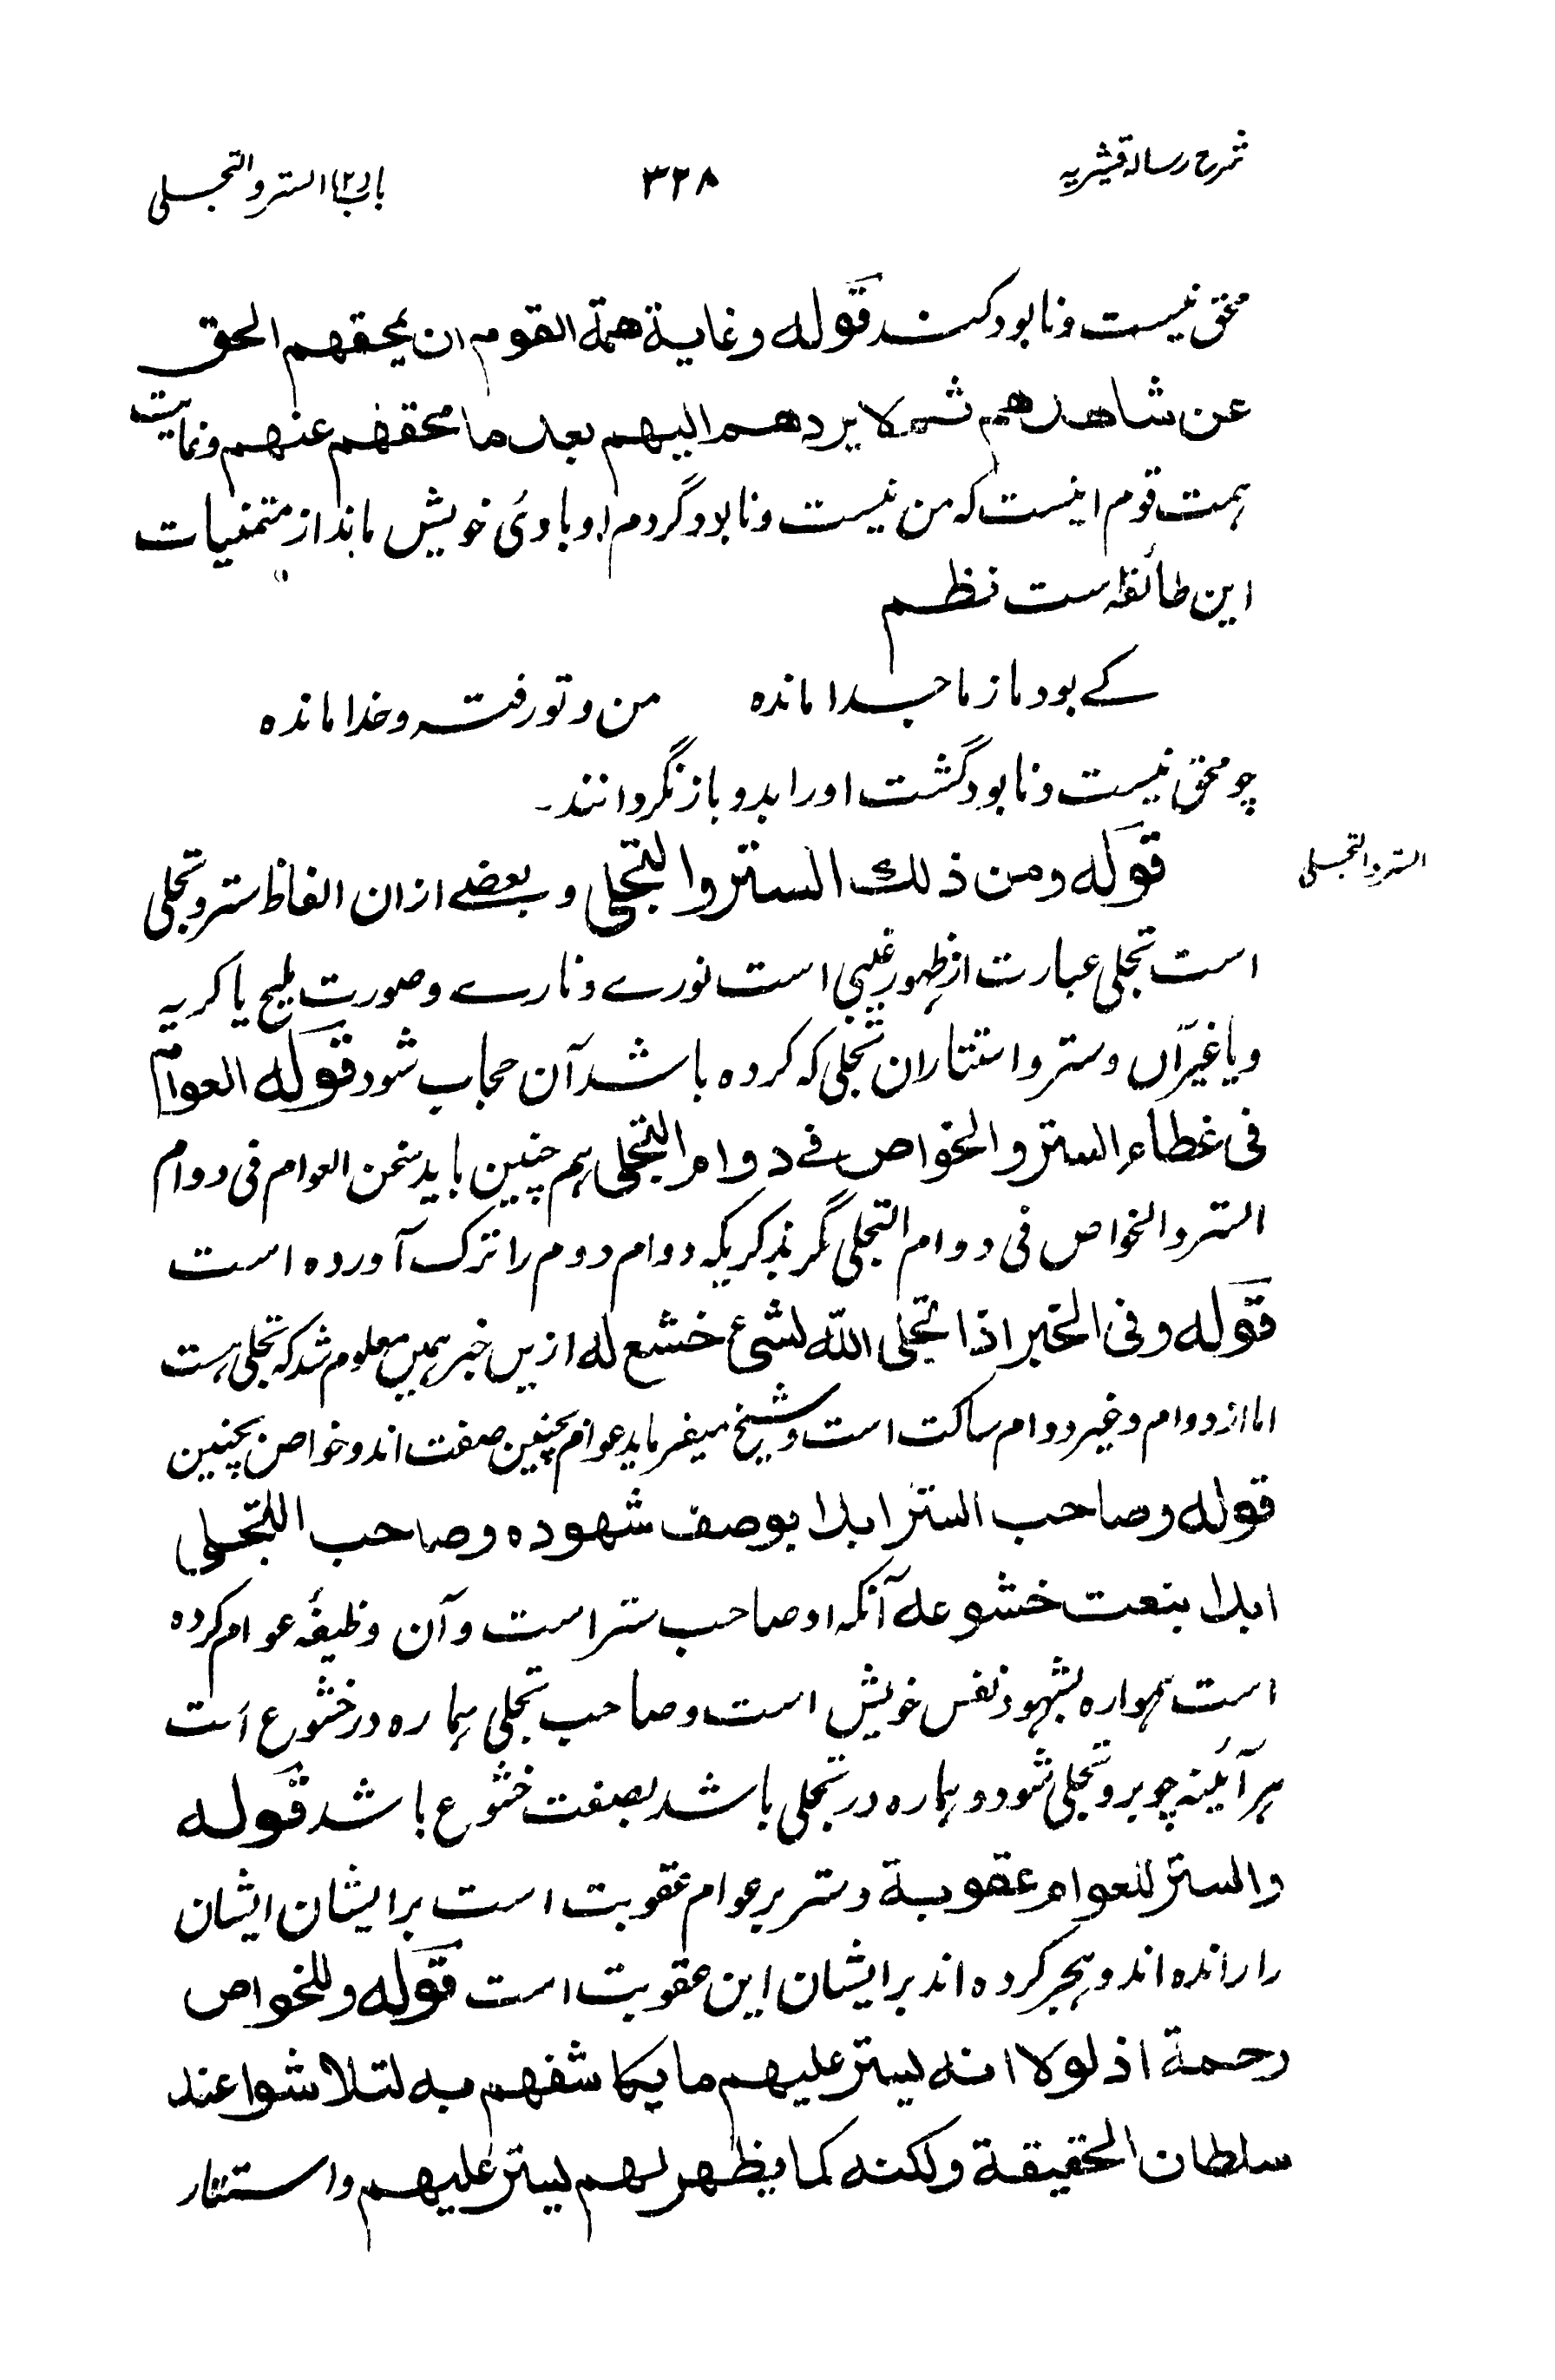 شرح رسالہ قشیریہ
۳۲۸
باب(۲) الستر والتجلی
محق نیست و نابود کند قوله وغاية همة القوم ان يمحقهم الحق
عن شاهدهم ثم لا يردهم اليهم بعد ما محقهم عنهم وغایت
ہمت قوم اینست کہ من نیست و نابود گردم او بادئ خویش ماند از متمنیات
این طائفہ است نظم
کے بود ما ز ما جدا ماندہ من و تو رفتہ و خدا ماندہ
چو محق نیست و نابود گشت اورا بدو باز نگردانند۔
الستر والتجلی
قوله ومن ذلك الستر والتجلى و بعضے ازان الفاظ ستر و تجلی
است تجلی عبارت از ظہور غیبی است نورے و نارے و صورت ملیح یا کریہ
و یا غیر آں و ستر و استتار ان تجلی کہ کردہ باشد آن حجاب شود قوله العوام
فى غطاء الستر والخواص فے دوام التجلى ہم چنیں باید سخن العوام فی دوام
الستر والخواص فی دوام التجلی مگر بذکر یکہ دوام دوم را ترک آوردہ است
قوله وفى الخبر اذا تجلى الله لشىء خشع له ازیں خبر ہمیں معلوم شد کہ تجلی ہست
اما از دوام و غیر دوام ساکت است و شیخ میفرماید عوام بچنین صفت اند و خواص بچنین
قوله وصاحب الستر ابدا بوصف شهوده وصاحب التجلى
ابدا بنعت خشوعه آنکہ او صاحب ستر است و آن وظیفۂ عوام کردہ
است ہموارہ بشہود نفس خویش است و صاحب تجلی ہمارہ در خشوع است
ہر آئینہ چو برو تجلی شود و ہمارہ در تجلی باشد بصفت خشوع باشد قوله
والستر للعوام عقوبة و ستر بر عوام عقوبت است بر ایشان ایشان
را راندہ اند و ہجر کردہ اند بر ایشان این عقوبت است قوله وللخواص
رحمة اذ لولا انه يستر عليهم ما يكاشفهم به لتلاشوا عند
سلطان الحقيقة ولكنه كما يظهر لهم يستر عليهم و استتار